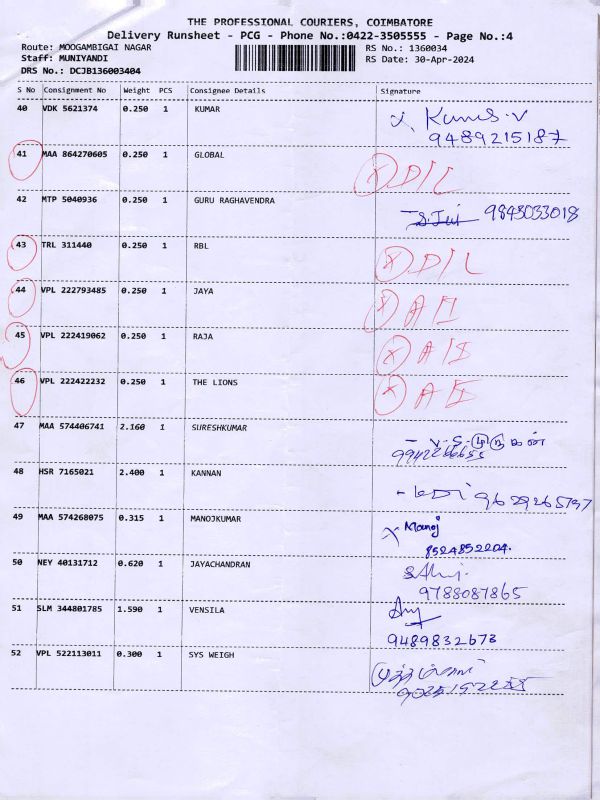 THE PROFESSIONAL COURIERS, COIMBATORE
Delivery Runsheet - PCG - Phone No.:0422-3505555 - Page No.:4
Route: MOOGAMBIGAI NAGAR RS No.: 1360034
Staff: MUNIYANDI RS Date: 30-Apr-2024
DRS No.: DCJB136003404
S No Consignment No Weight PCS Consignee Details Signature
40 VDK 5621374 0.250 1 KUMAR
9489215187
41 MAA 864270605 0.250 1 GLOBAL D/L
42 MTP 5040936 0.250 1 GURU RAGHAVENDRA 9843033018
43 TRL 311440 0.250 1 RBL D/L
44 VPL 222793485 0.250 1 JAYA
45 VPL 222419062 0.250 1 RAJA
46 VPL 222422232 0.250 1 THE LIONS
47 MAA 574406741 2.160 1 SURESHKUMAR
48 HSR 7165021 2.400 1 KANNAN
49 MAA 574268075 0.315 1 MANOJKUMAR x Manoj
8524852204.
50 NEY 40131712 0.620 1 JAYACHANDRAN
9788087865
51 SLM 344801785 1.590 1 VENSILA
9489832673
52 VPL 522113011 0.300 1 SYS WEIGH